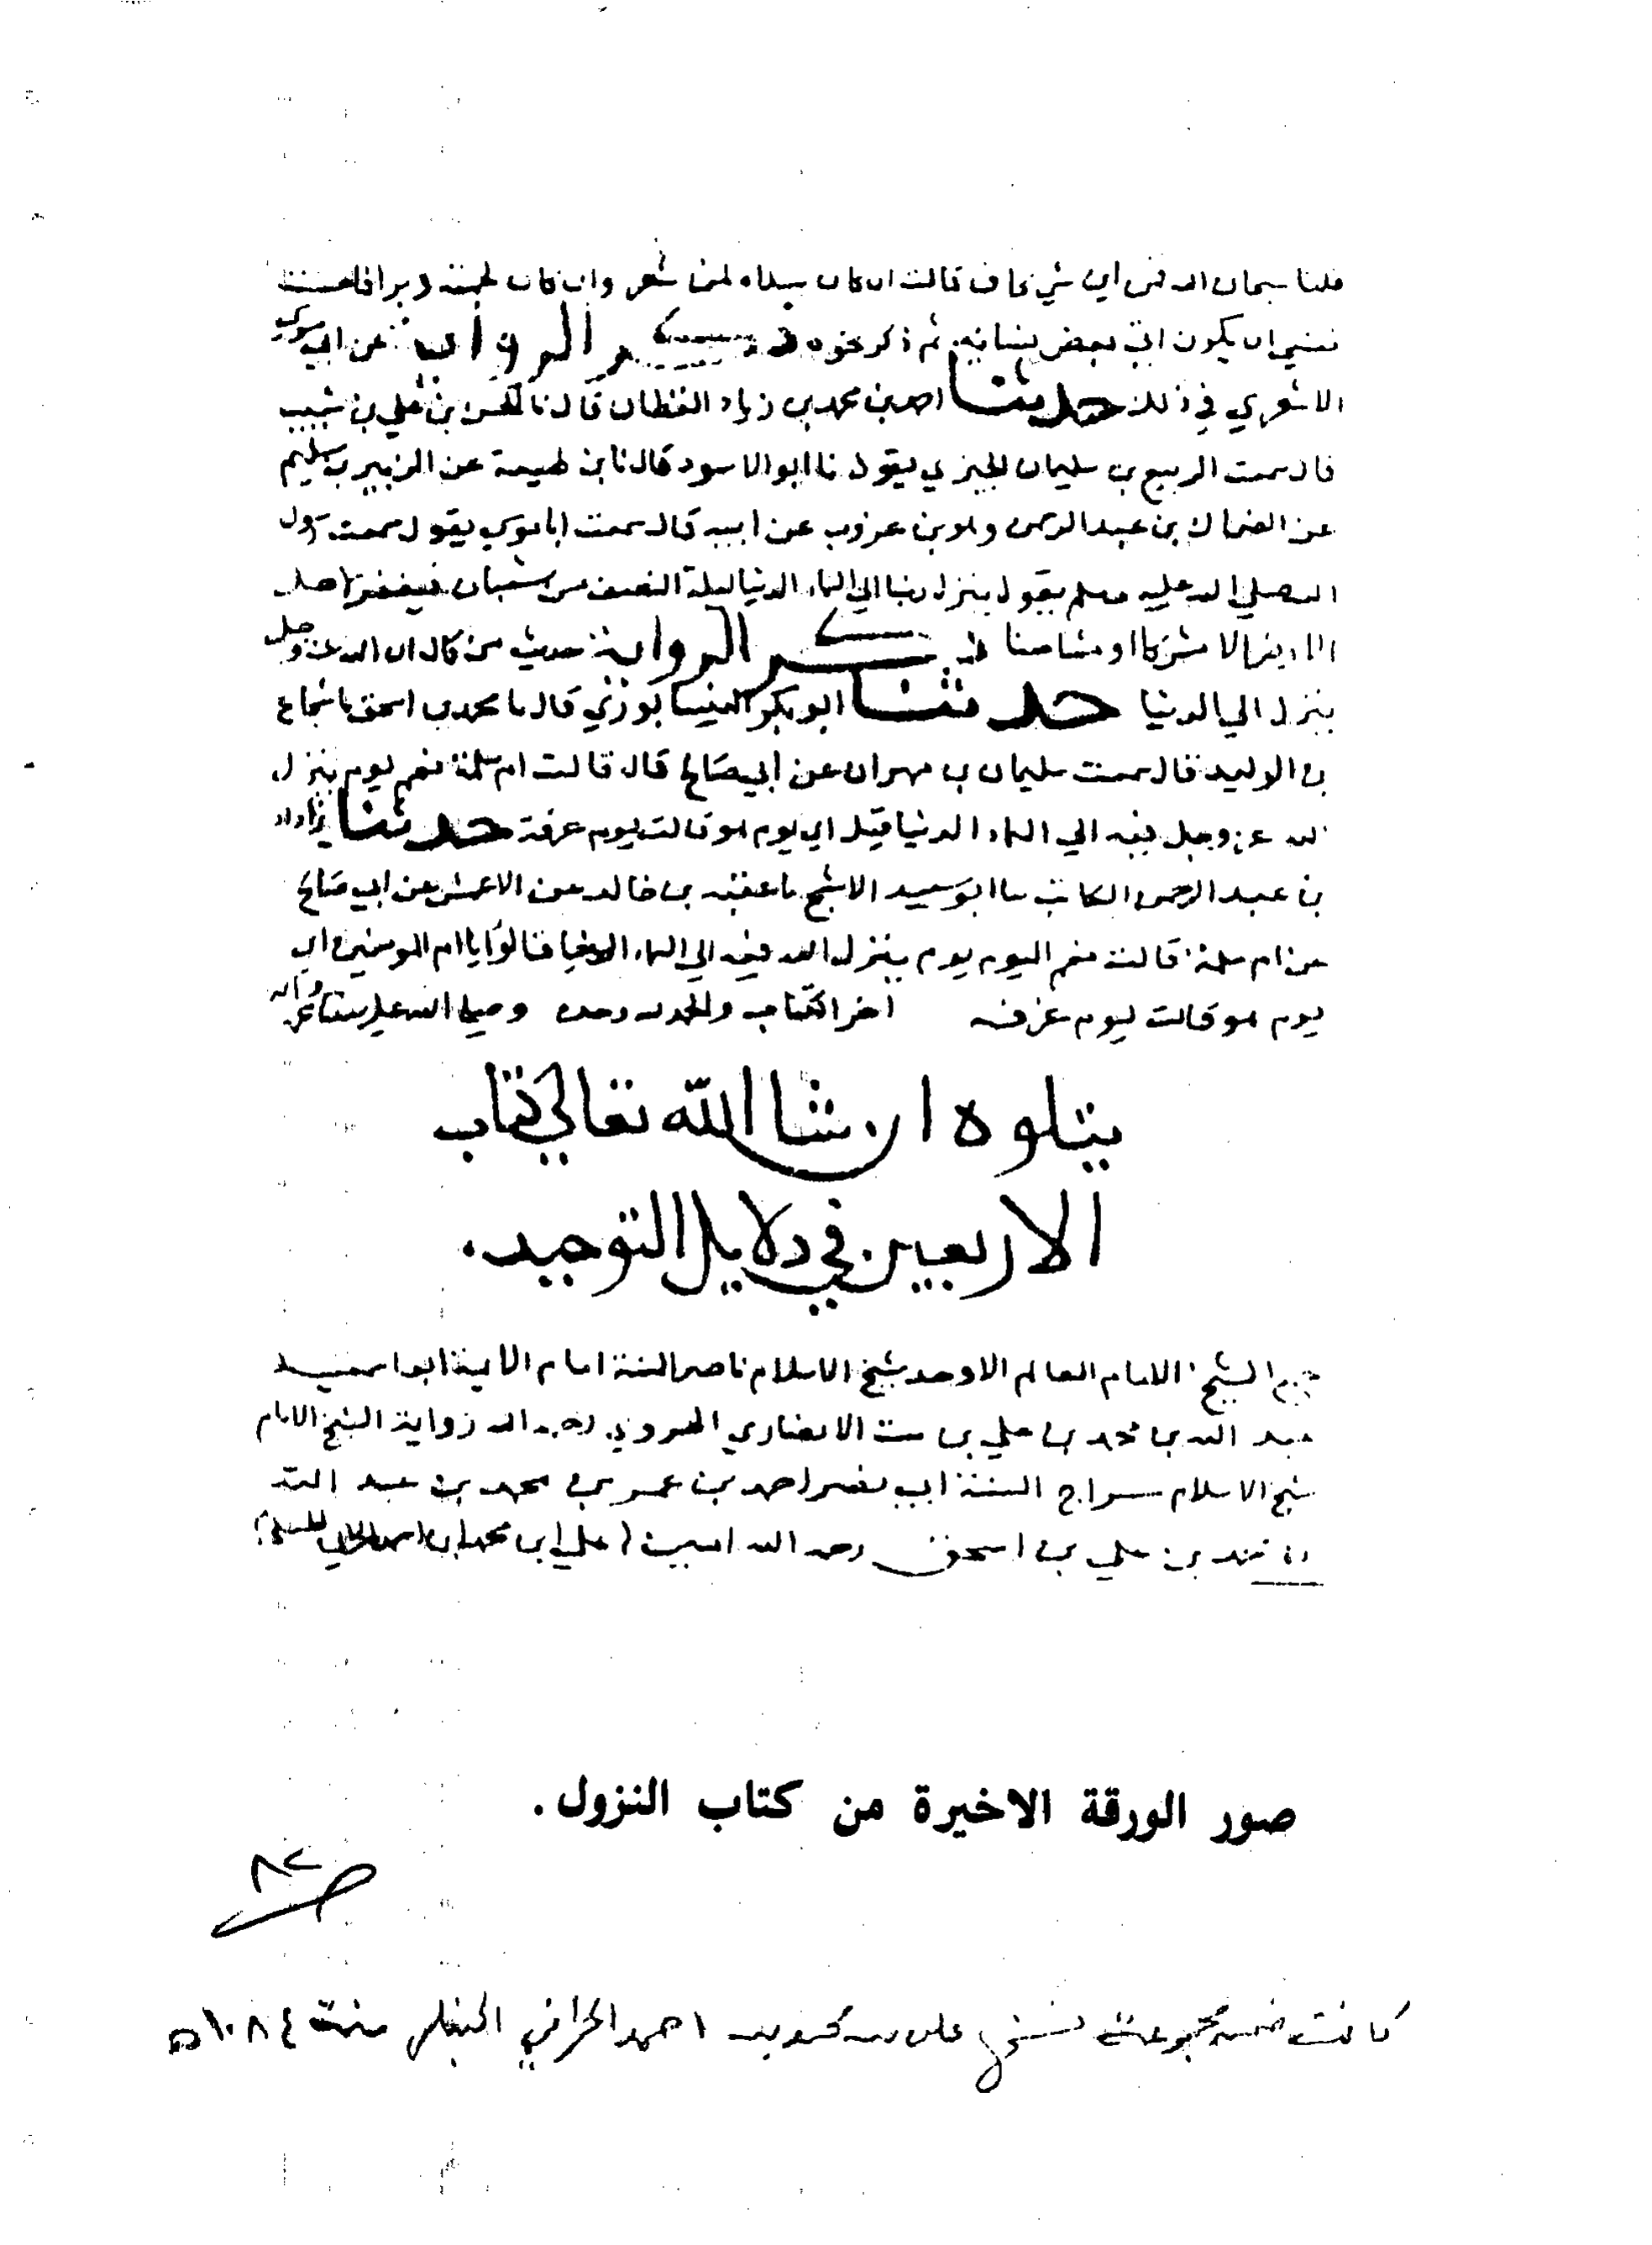 قلنا سبحان الله فمن اي شي قالت ان كان وان كان
نفسي ان يكون اتى بعض نسايه ثم ذكر نحوه ذكر الرواية عن ابي موسى
الاشعري في ذلك حدثنا احمد بن محمد بن زياد القطان قال نا الحسن بن علي بن شبيب
قال سمعت الربيع بن سليمان الجيزي يقول نا ابو الاسود قال نا ابن لهيعة عن الزبير بن سليم
عن الضحاك بن عبد الرحمن وهو بن عرزب عن ابيه قال سمعت ابا موسى يقول سمعت رسول
الله صلى الله عليه وسلم يقول ينزل ربنا الى السماء الدنيا ليلة النصف من شعبان فيغفر لاهل
الارض الا مشركا او مشاحنا ذكر الرواية حديث من قال ان الله عز وجل
ينزل الي الدنيا حدثنا ابو بكر النيسابوري قال نا محمد بن اسحق نا شجاع
بن الوليد قال سمعت سليمان بن مهران عن ابي صالح قال قالت ام سلمة نعم يوم ينزل
الله عز وجل فيه الي السماء الدنيا قيل اي يوم هو قالت يوم عرفة حدثنا يزداد
بن عبد الرحمن الكاتب نا ابو سعيد الاشج نا عقبة بن خالد عن الاعمش عن ابي صالح
عن ام سلمة قالت نعم اليوم يوم ينزل الله فيه الى السماء الدنيا قالوا يا ام المومنين اي
يوم هو قالت يوم عرفه اخر الكتاب والحمد لله وحده وصلى الله على سيدنا محمد وآله
يتلوه ان شا الله تعالى كتاب
الاربعين في دلايل التوحيد.
الشيخ الامام العالم الاوحد شيخ الاسلام ناصر السنة امام الايمة ابو اسمعيل
عبد الله بن محمد بن علي بن مت الانصاري الهروي رحمه الله رواية الشيخ الامام
شيخ الاسلام سراج السنة ابي نصر احمد بن عمر بن محمد بن عبد الله
بن محمد بن علي بن اسحق رحمه الله امين (علي ابن محمد ابن
صور الورقة الاخيرة من كتاب النزول.
٨٢
كانت ضمن مجموعة نسخ احمد الحراني الحنبلي سنة ١٠٨٤ه